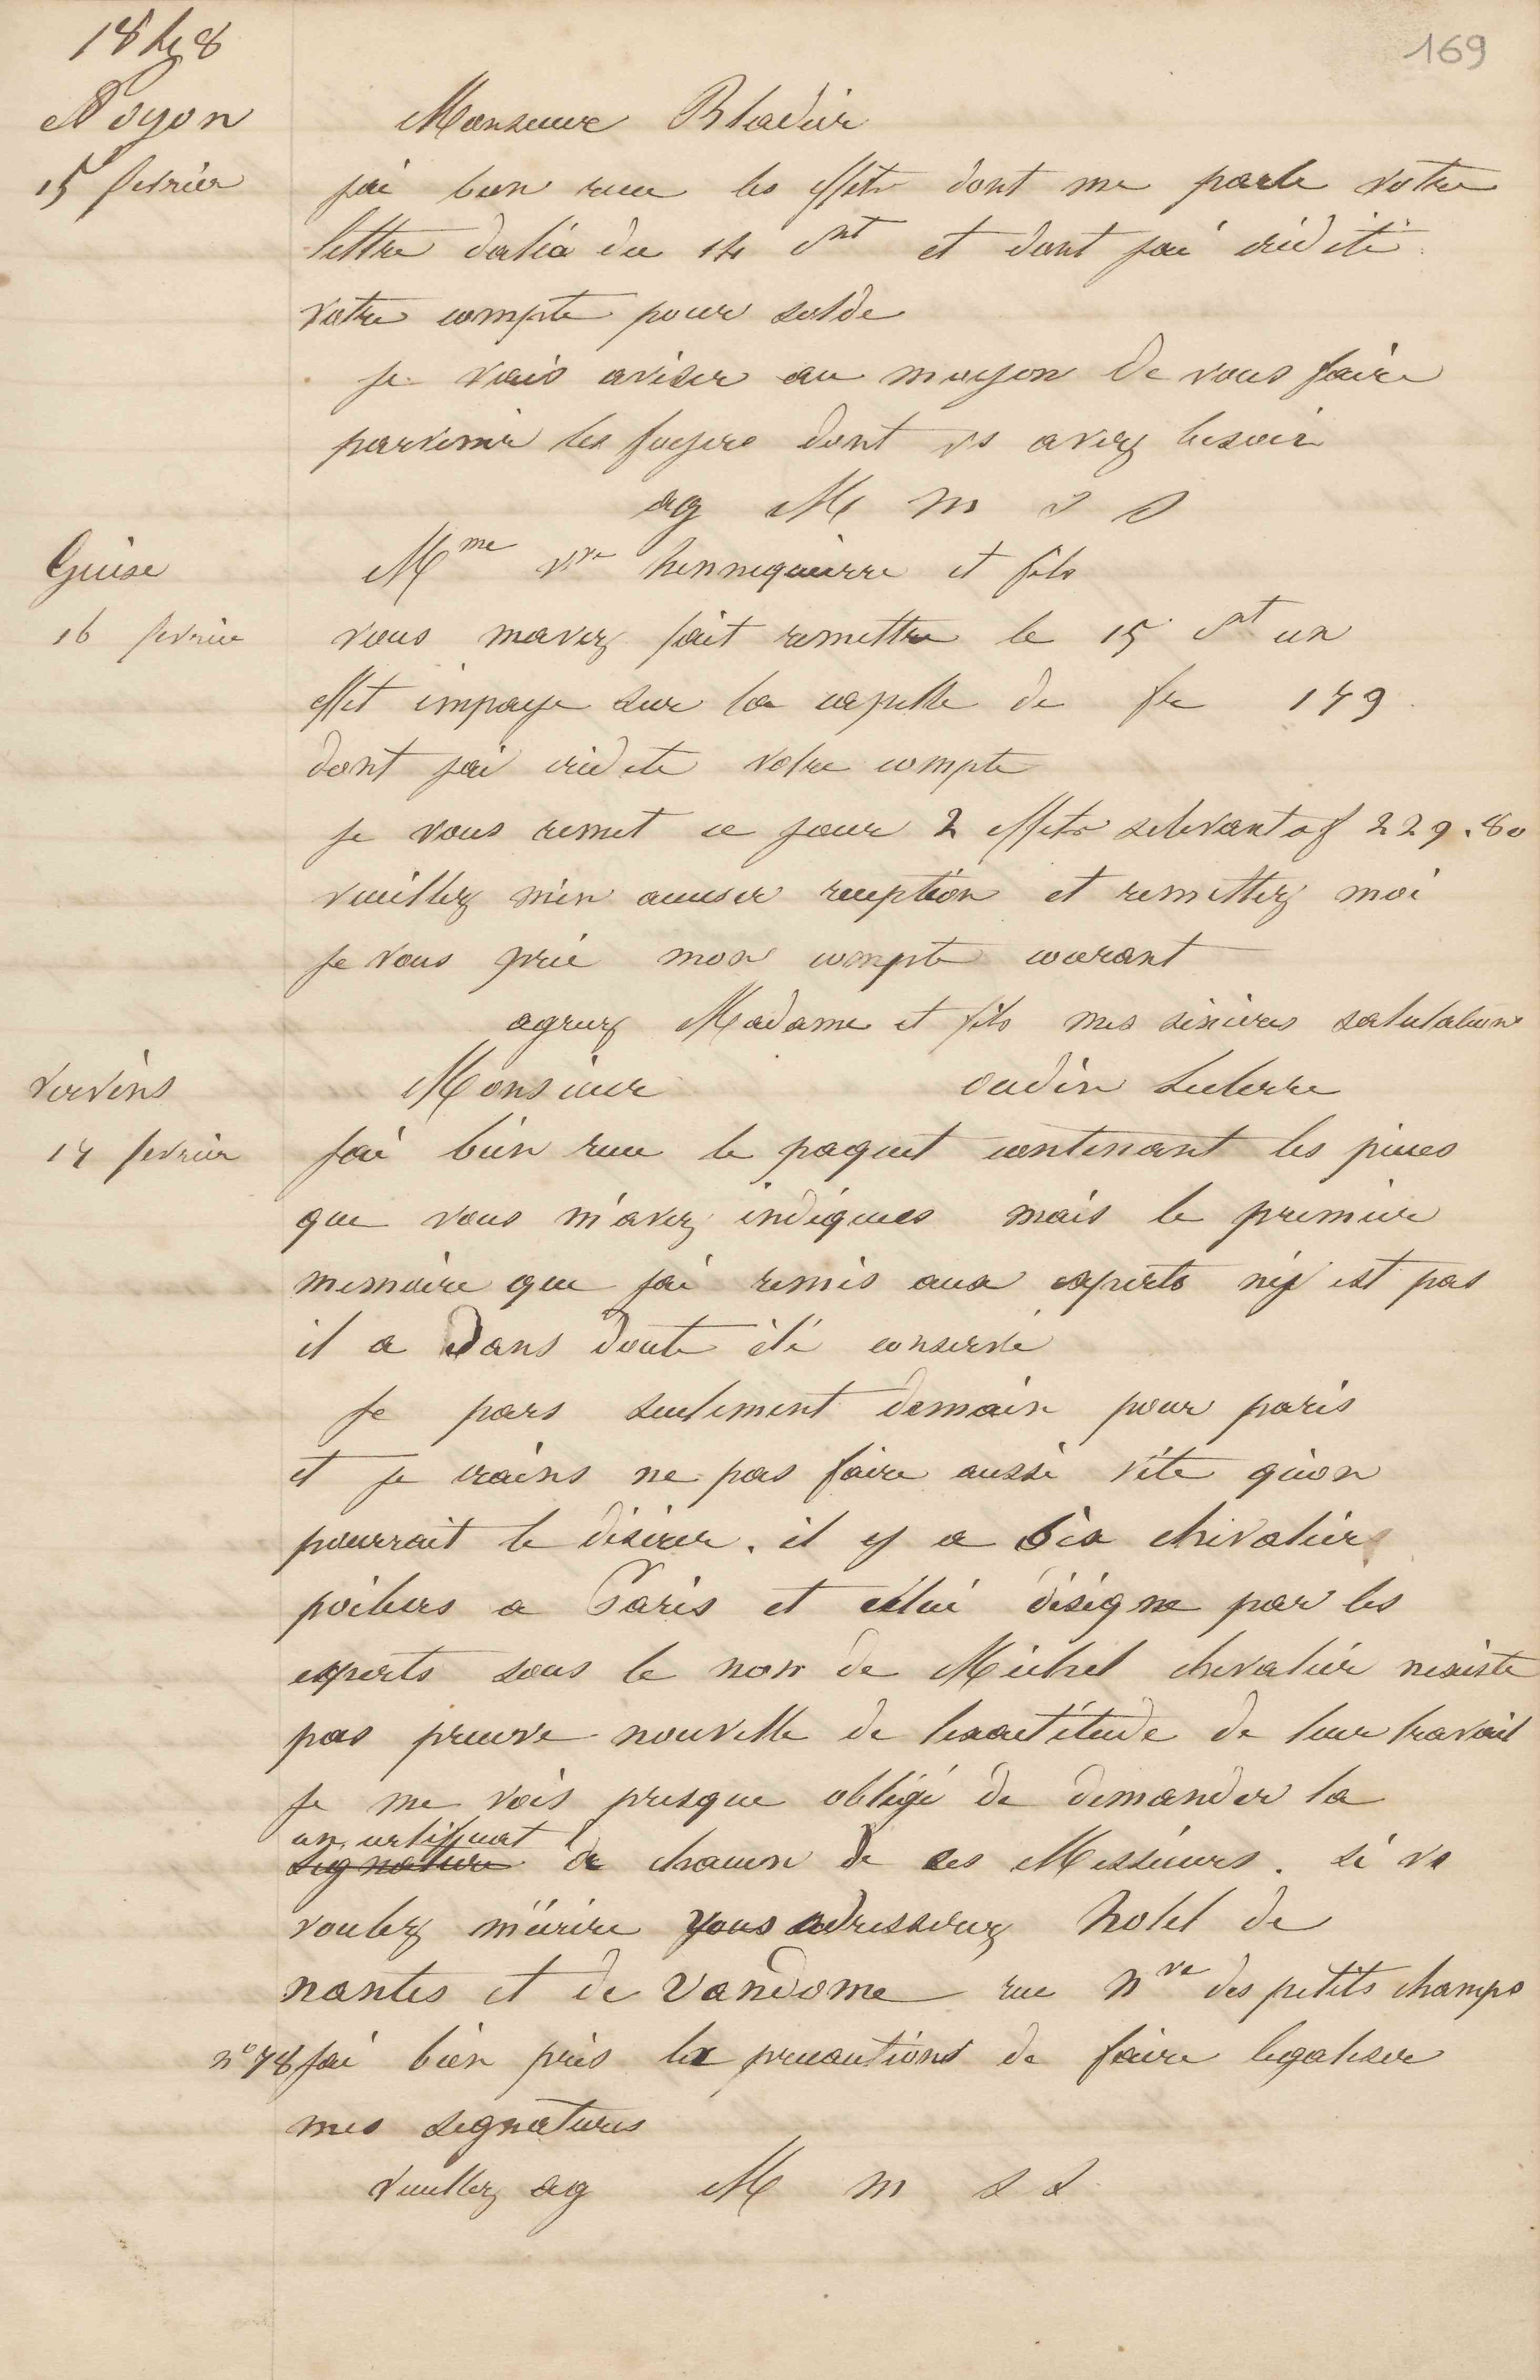 169
1848
Noyon
15 fevrier
Monsieur Bladier
jai bien recu les effets dont me parle votre
lettre datéé du 14 ct et dont jai crédité
votre compte pour solde
je vais aviser au moyen de vous faire
parvenir les foyers dont vs avez besoin
ag M m s s
Guise
16 fevrier
Mme vve hennequierre et fils
vous mavez fait remettre le 15 ct un
effet impaye sur la capelle de fr 149
dont jai crédite votre compte
je vous remet ce jour 2 effets selevant a f 229.80
veuillez m'en accuser reception et remettez moi
je vous prie mon compte courant
agreez Madame et fils mes sinceres salutations
Vervins
17 fevrier
Monsieur oudin Leclerre
jai bien recu le paquet contenant les pieces
que vous m'avez indiquees mais le premier
memoire que jai remis aux experts n'y est pas
il a Dans doute été conservé
je pars seulement demain pour paris
et je crains ne pas faire aussi vite qu'on
pourrait le désirer. il y a dix chevaliers
poëliers a Paris et celui désigne par les
experts sous le nom de Michel chevalier nexiste
pas preuve nouvelle de lexactitude de leur travail
je me vois presque obligé de demander la
un certificat
signature de chacun de ces Messieurs. si vs
voulez m'écrire vous adresserez hotel de
nantes et de Vandome rue Nve des petits champs
n° 78 jai bien pris les precautions de faire legaliser
mes signatures
veuillez ag M m s s